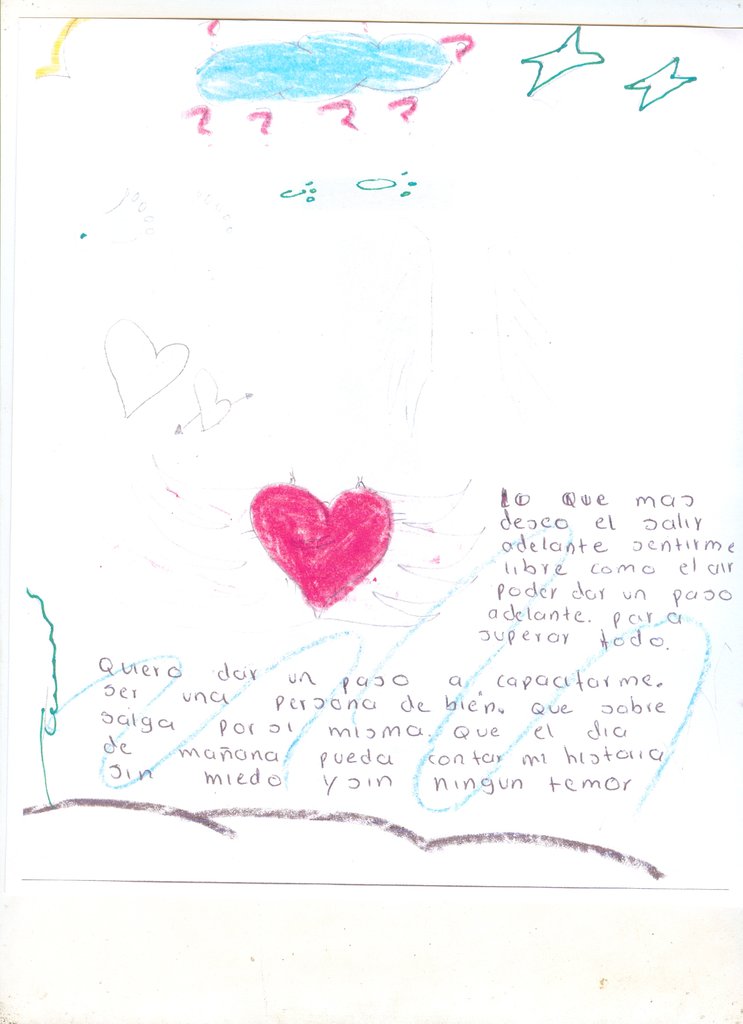 lo que mas
deseo el salir
adelante sentirme
libre como el air
poder dar un paso
adelante. para
superar todo.
Quiero dar un paso a capacitarme.
ser una persona de bien. que sobre
salga por si misma. que el dia
de mañana pueda contar mi historia
sin miedo y sin ningun temor